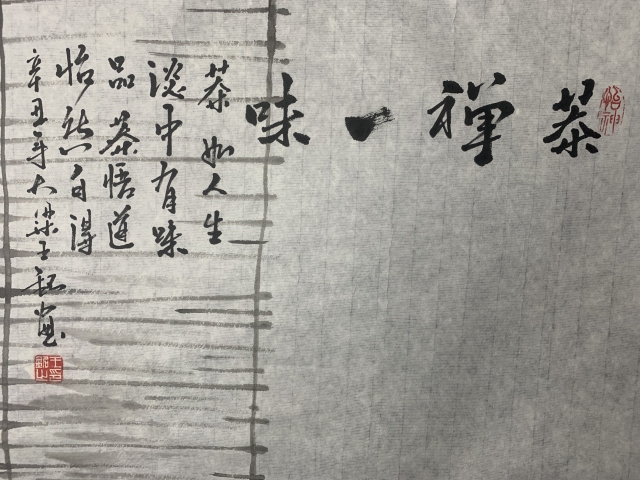 茶禅一味
茶如人生
淡中有味
品茶悟道
怡然自得
辛丑年大梁王
怡神